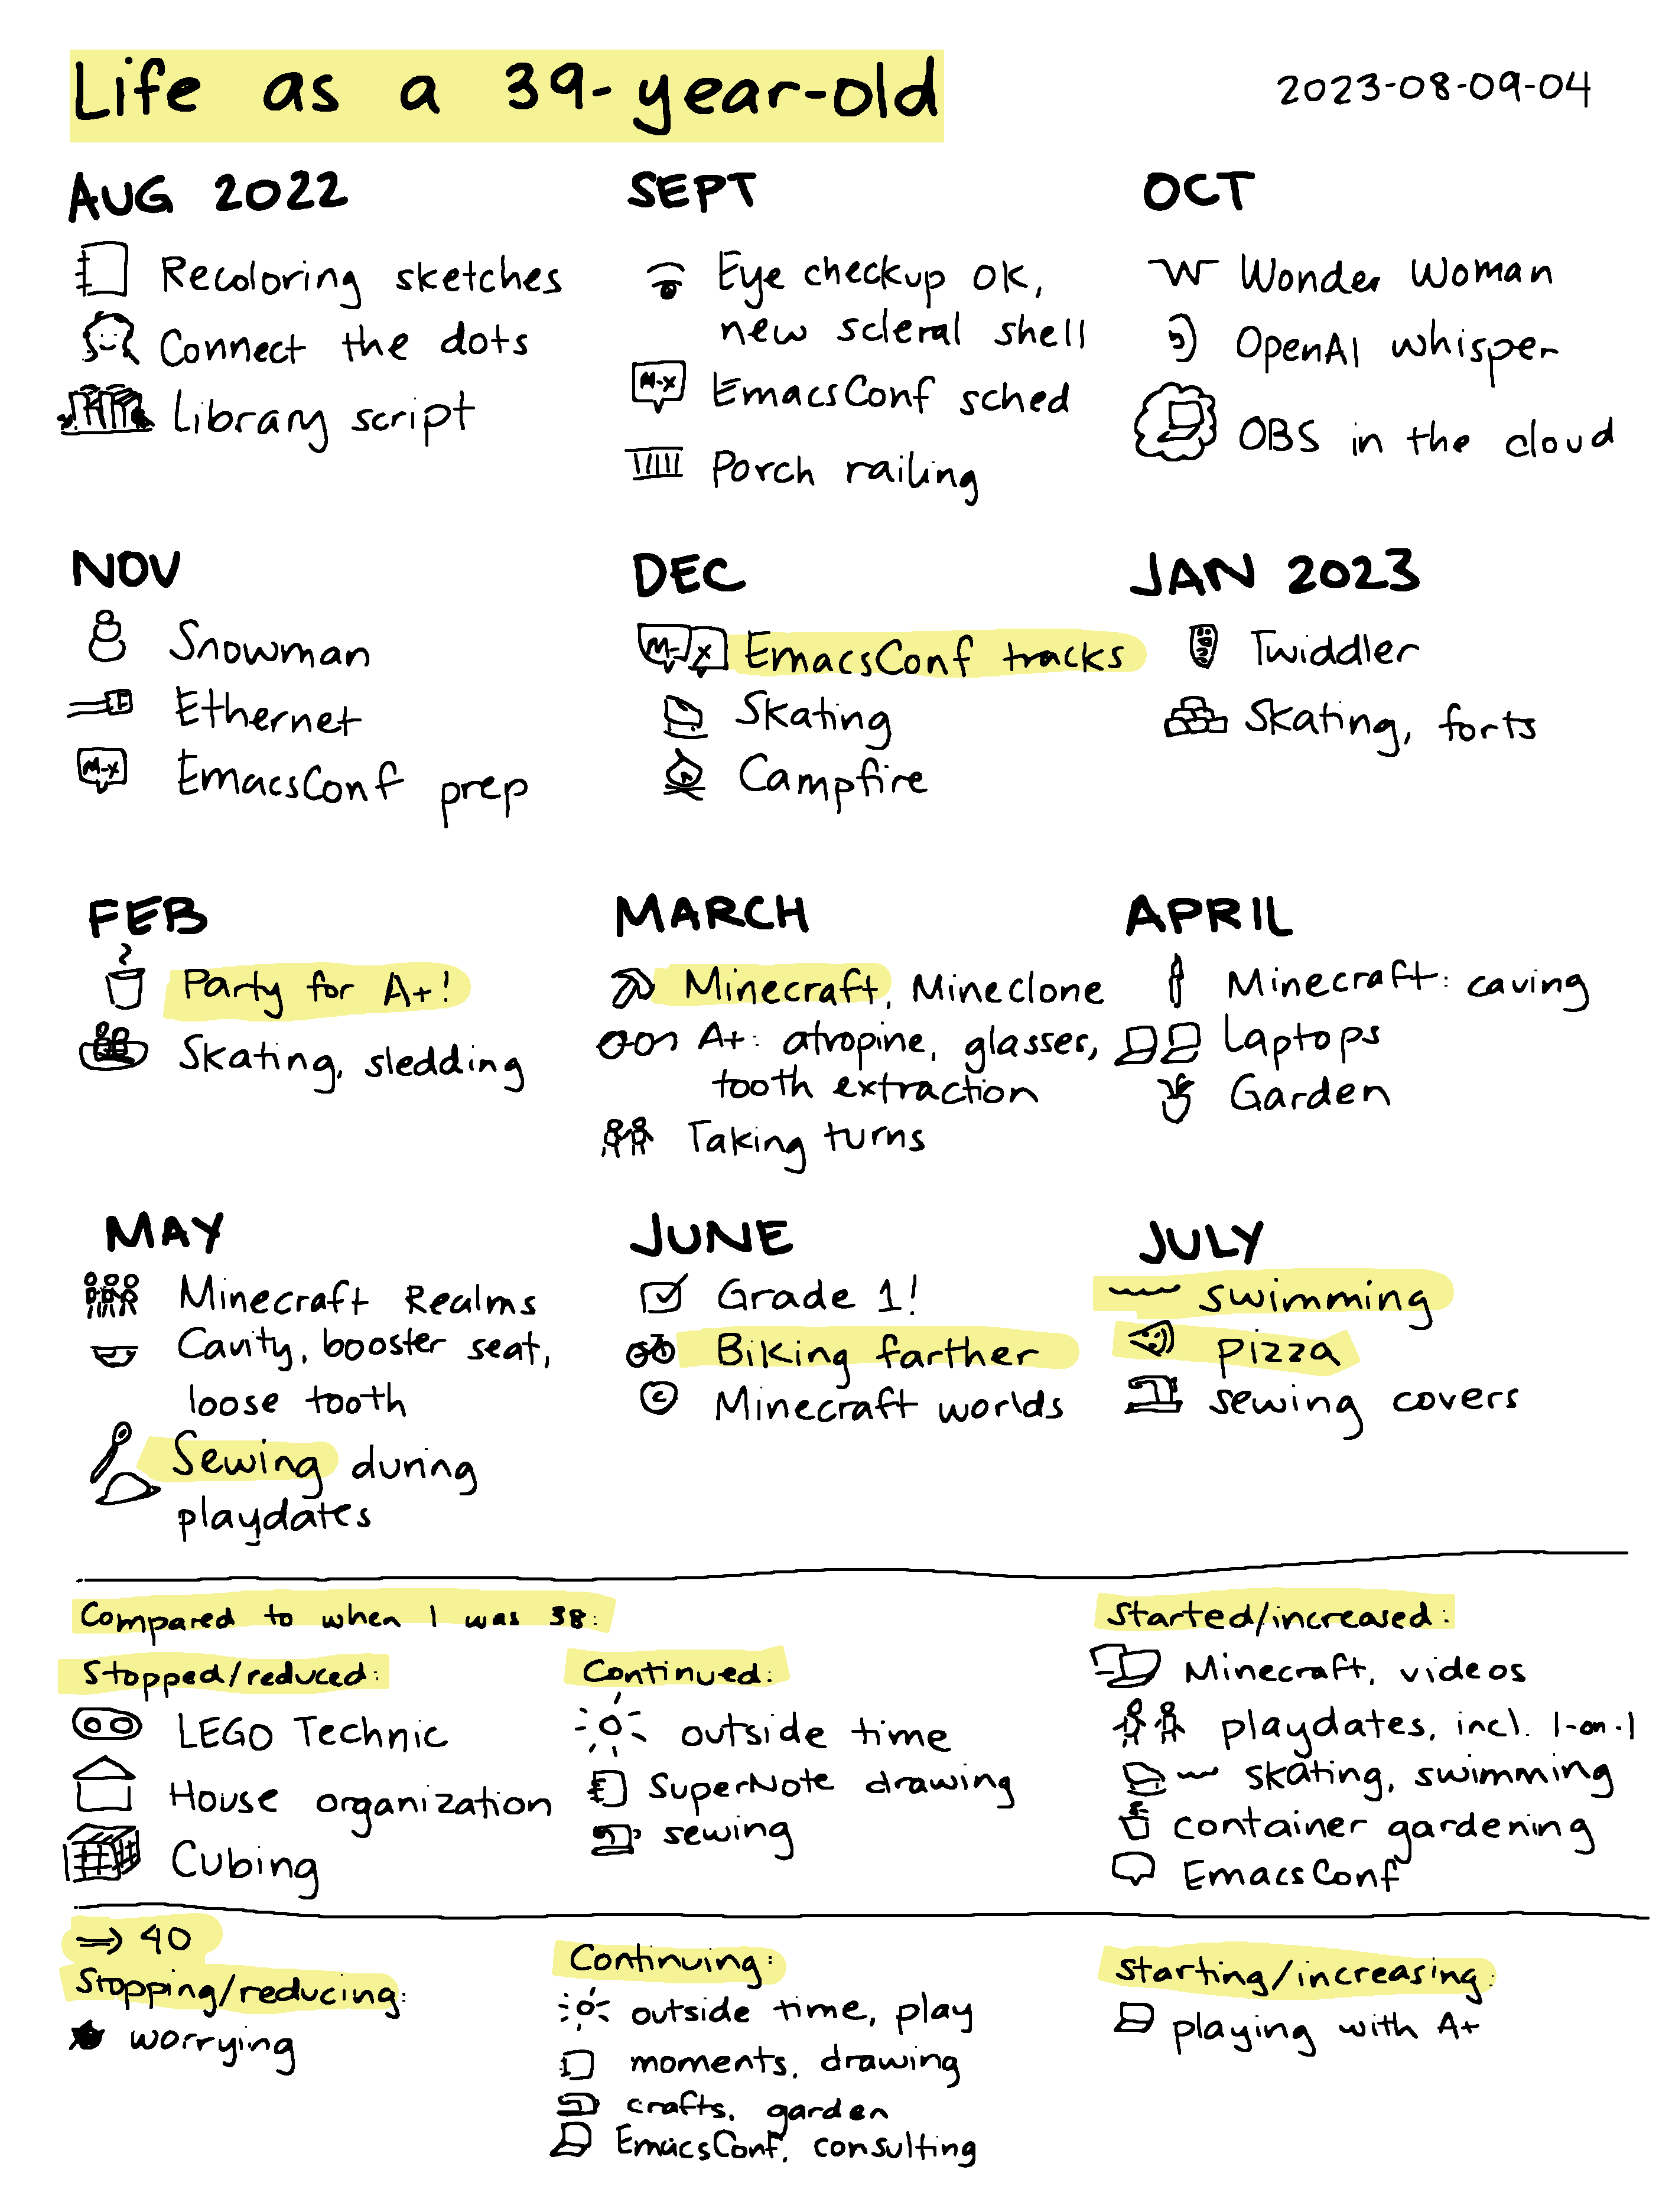 Life as a 39-year-old
2023-08-09-04
AUG 2022
Recoloring sketches
Connect the dots
Library script
SEPT
Eye checkup OK,
new scleral shell
M-x
EmacsConf sched
Porch railing
OCT
W Wonder Woman
OpenAI whisper
OBS in the cloud
NOV
Snowman
Ethernet
M-x
EmacsConf prep
DEC
M-x
EmacsConf tracks
Skating
Campfire
JAN 2023
Twiddler
Skating, forts
FEB
Party for A+!
Skating, sledding
MARCH
Minecraft, Mineclone
A+: atropine, glasses,
tooth extraction
Taking turns
APRIL
Minecraft: caving
Laptops
Garden
MAY
Minecraft Realms
Cavity, booster seat,
loose tooth
Sewing during
playdates
JUNE
Grade 1!
Biking farther
C Minecraft worlds
JULY
swimming
pizza
sewing covers
Compared to when I was 38:
Stopped/reduced:
LEGO Technic
House organization
Cubing
Continued:
outside time
SuperNote drawing
sewing
Started/increased:
Minecraft, videos
playdates, incl. 1-on-1
skating, swimming
container gardening
EmacsConf
⇒ 40
Stopping/reducing:
worrying
Continuing:
outside time, play
moments, drawing
crafts, garden
EmacsConf, consulting
Starting/increasing:
playing with A+